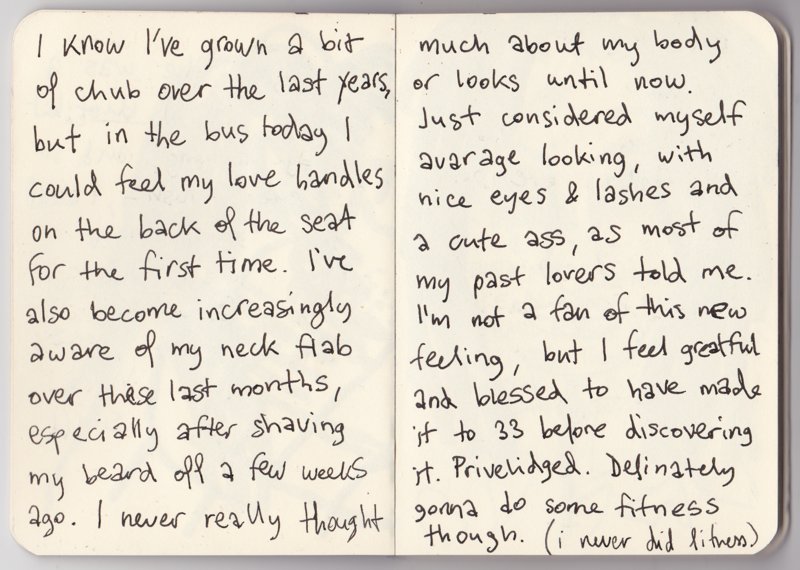 I know I've grown a bit
of chub over the last years,
but in the bus today I
could feel my love handles
on the back of the seat
for the first time. I've
also become increasingly
aware of my neck flab
over these last months,
especially after shaving
my beard off a few weeks
ago. I never really thought
much about my body
or looks until now.
Just considered myself
avarage looking, with
nice eyes & lashes and
a cute ass, as most of
my past lovers told me.
I'm not a fan of this new
feeling, but I feel greatful
and blessed to have made
it to 33 before discovering
it. Privelidged. Definately
gonna do some fitness
though. (i never did fitness)